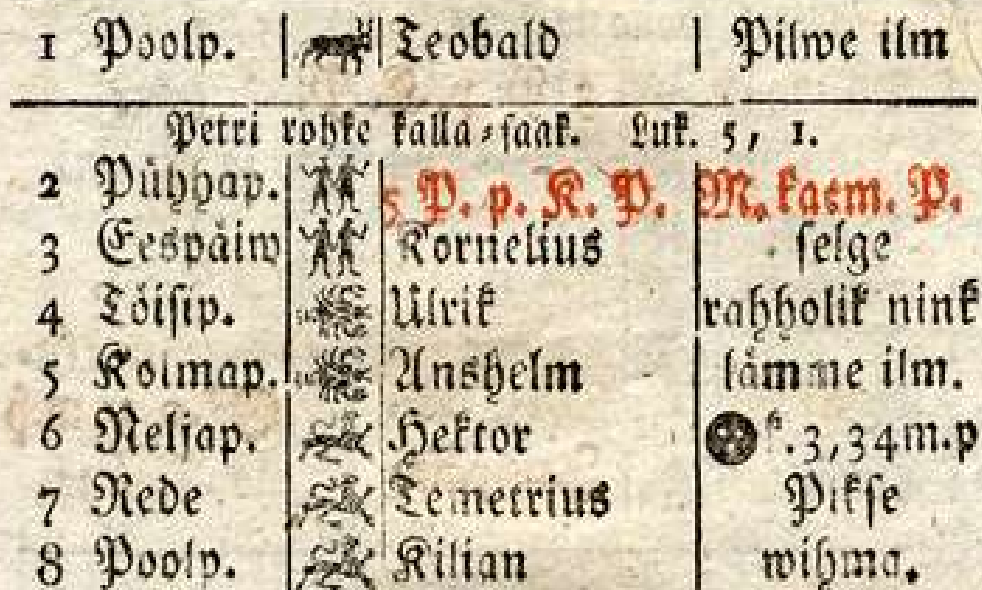 1 Poolp. Teobald Pilwe ilm
Petri rohke kalla-saak. Luk. 5, 1.
2 Pühhap. 5 P. p. K. P. M. kaem. P.
3 Eespäiw Kornelius selge
4 Töisip. Ulrik rahholik nink
5 Kolmap. Anshelm lämme ilm.
6 Neljap. Hektor k. 3, 34 m. p
7 Rede Temetrius Pikse
8 Poolp. Kilian wihma.